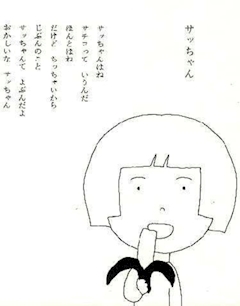 サッちゃん
サッちゃんはね
サチコって いうんだ
ほんとはね
だけど ちっちゃいから
じぶんのこと
サッちゃんて よぶんだよ
おかしいな サッちゃん